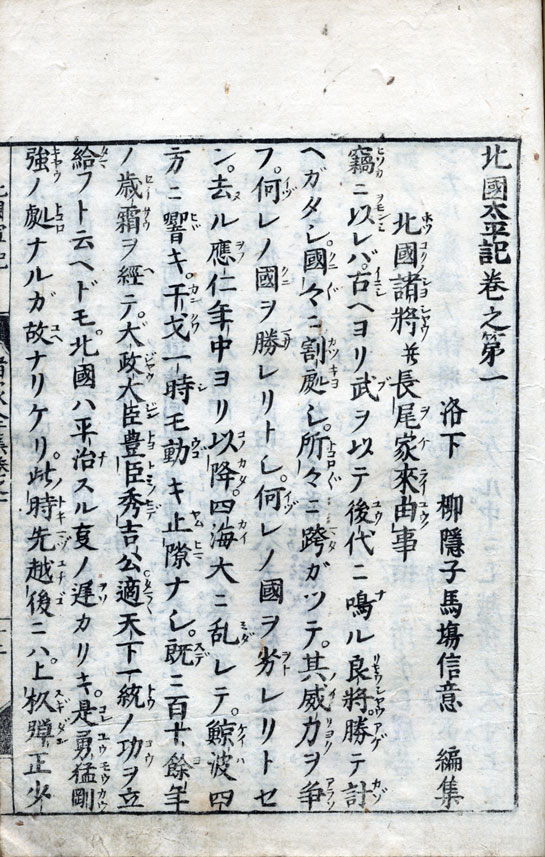 北國太平記卷之第一
洛下　柳隱子馬塲信意　編集
北國諸將并長尾家來由事
竊ニ以レバ。古ヘヨリ武ヲ以テ後代ニ鳴ル良將。勝テ計
ヘガタシ。國々ニ割處シ。所々ニ跨ガツテ。其威力ヲ爭
フ。何レノ國ヲ勝レリトシ。何レノ國ヲ劣レリトセ
ン。去ル應仁年中ヨリ以降。四海大ニ乱レテ。鯨波四
方ニ響キ。干戈一時モ動キ止隙ナシ。既ニ百十餘年
ノ歳霜ヲ經テ。大政大臣豊臣秀吉公。適天下一統ノ功ヲ立
給フト云ヘドモ。北國ハ平治スル叓ノ遲カリキ。是勇猛剛
強ノ劇ナルガ故ナリケリ。此時先越後ニハ。上杉彈正少